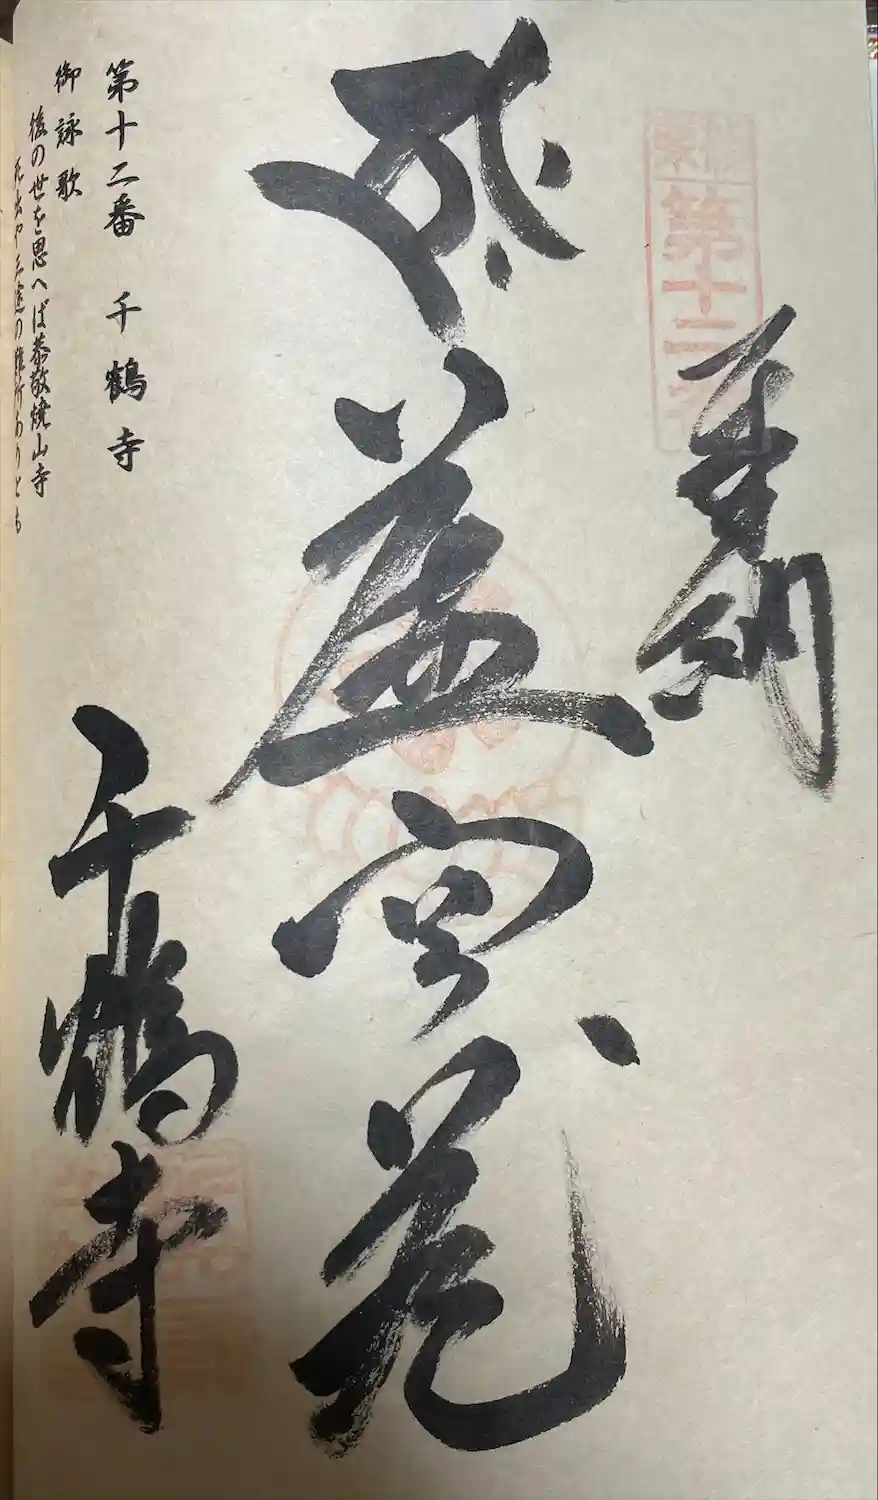 第十二番
奉納
空
千鶴寺
第十二番 千鶴寺
御詠歌
後の世を思へば恭敬焼山寺
死出や三途の難所ありとも